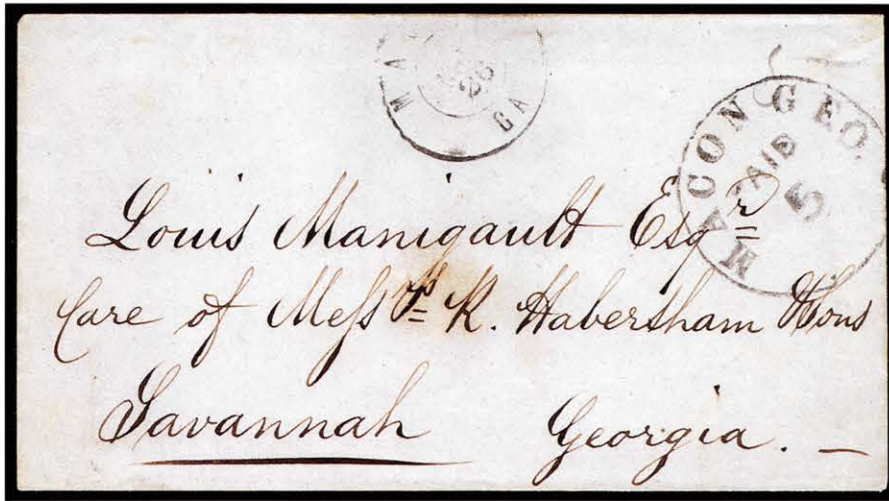 MA
26
GA
MACON GEO.
PAID
5
Louis Manigault Esqr
Care of Messrs R. Habersham & Sons
Savannah Georgia. —